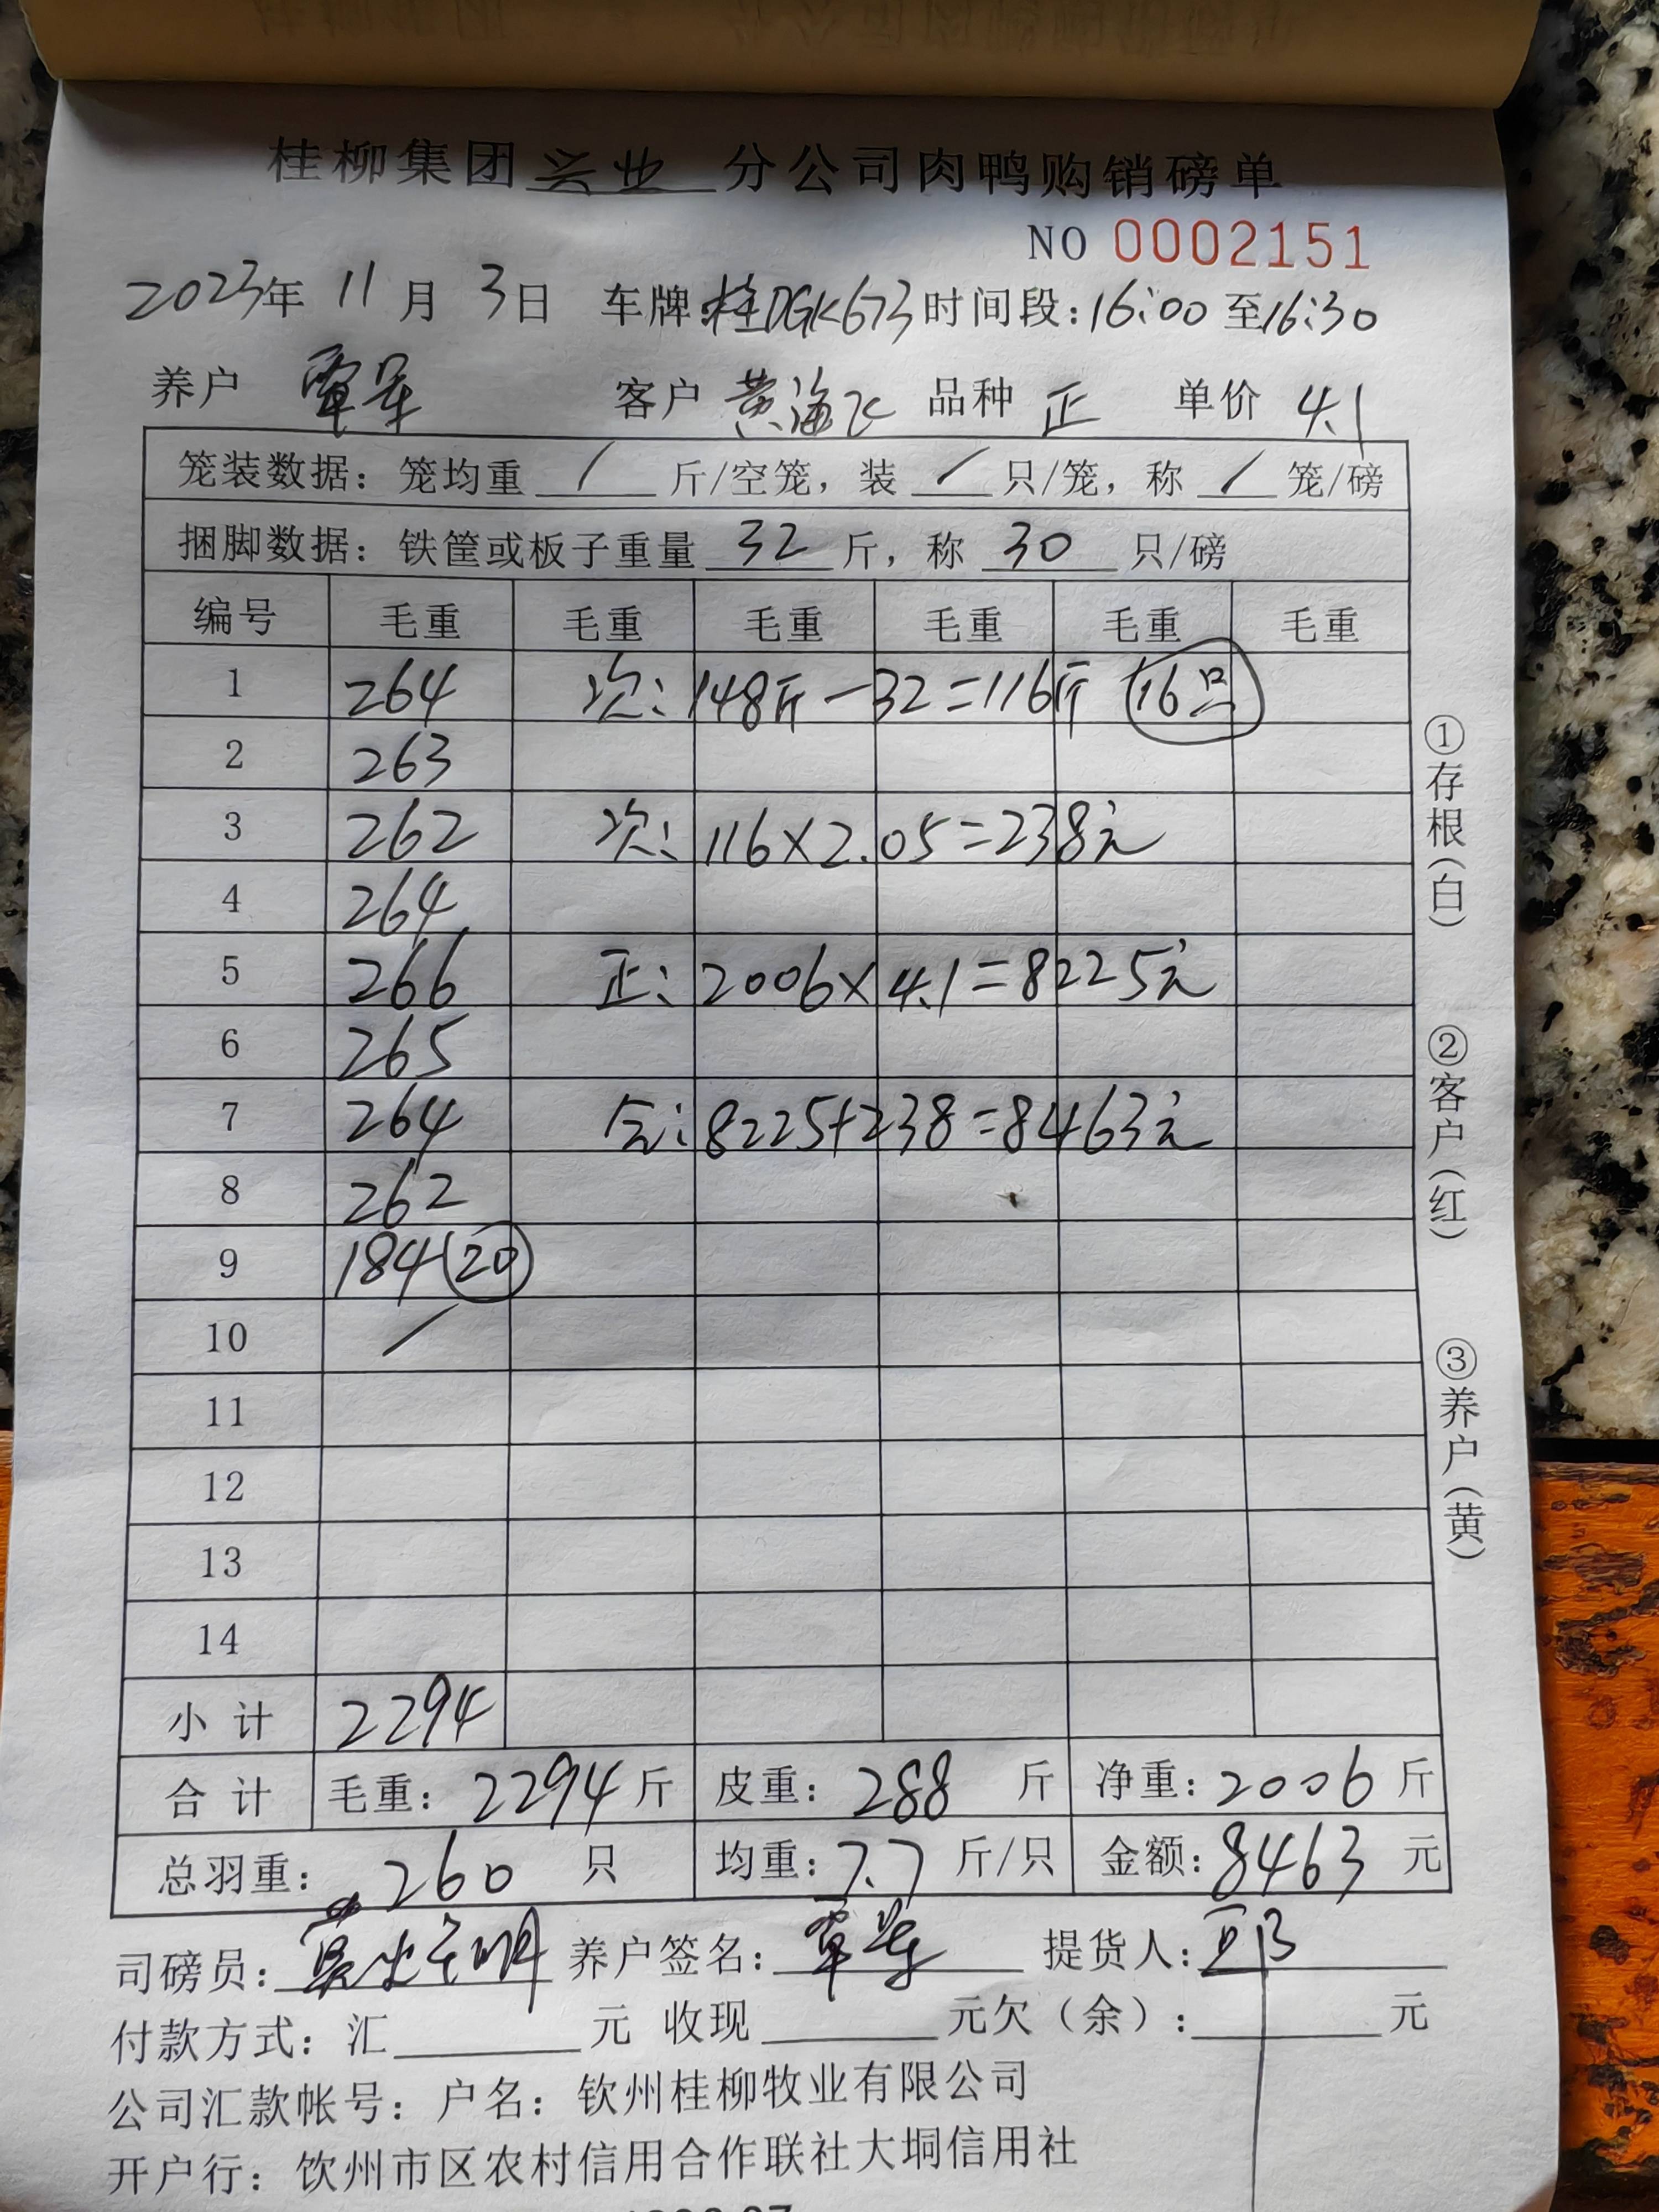 桂柳集团兴业分公司肉鸭购销磅单
NO 0002151
2023年 11月 3日 车牌:桂DGK673 时间段:16:00至16:30
养户 覃军 客户 黄海飞 品种 正 单价 4.1
笼装数据：笼均重 / 斤/空笼，装 / 只/笼，称 / 笼/磅
捆脚数据：铁筐或板子重量 32 斤，称 30 只/磅
编号 毛重 毛重 毛重 毛重 毛重 毛重
1 264 次:148斤-32=116斤 16只
2 263
3 262 次:116×2.05=238元
4 264
5 266 正:2006×4.1=8225元
6 265
7 264 合:8225+238=8463元
8 262
9 184 20
10 /
11
12
13
14
小计 2294
合计 毛重：2294斤 皮重：288 斤 净重：2006斤
总羽重：260 只 均重：7.7 斤/只 金额：8463元
司磅员： 养户签名：覃军 提货人：
付款方式：汇 元 收现 元欠（余）： 元
公司汇款帐号：户名：钦州桂柳牧业有限公司
开户行：饮州市区农村信用合作联社大垌信用社
①存根（白）
②客户（红）
③养户（黄）